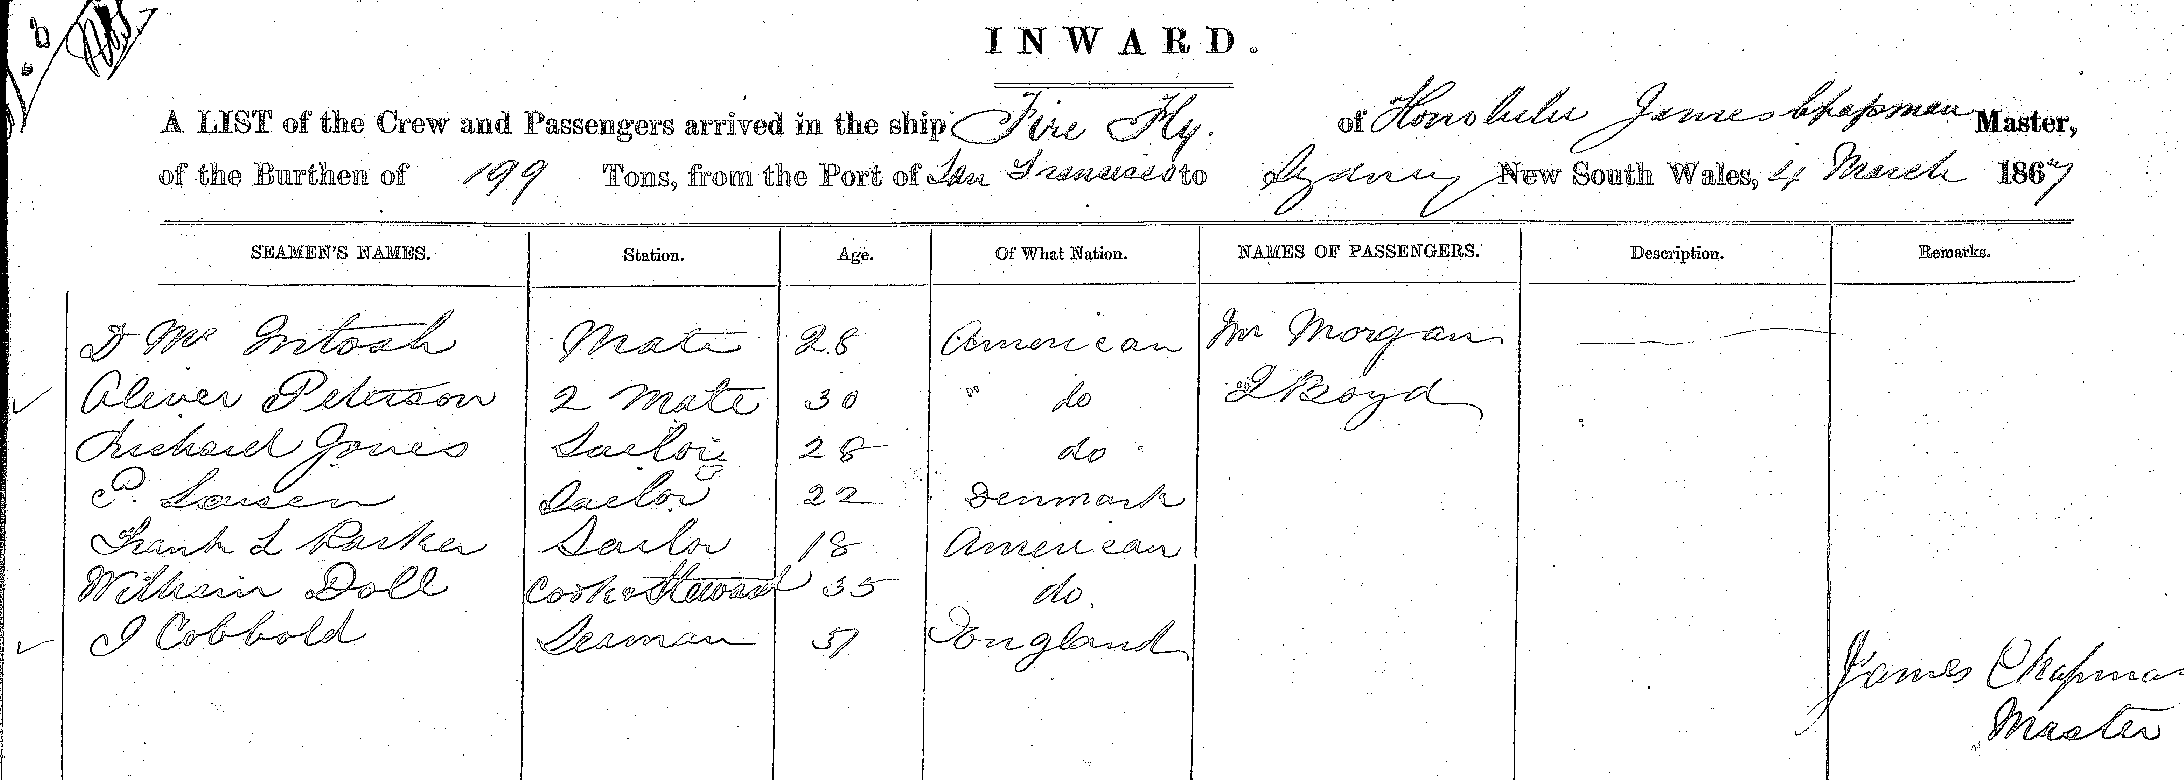 INWARD.
A LIST of the Crew and Passengers arrived in the ship Fire Fly. of Honolulu James Chapman Master,
of the Burthen of 199 Tons, from the Port of San Francisco to Sydney New South Wales, 4 March 1867
SEAMEN'S NAMES. Station. Age. Of What Nation. NAMES OF PASSENGERS. Description. Remarks.
D Mc Intosh Mate 28 American Mr Morgan
Oliver Peterson 2 Mate 30 " do Boyd
Richard Jones Sailor 28 do
P. Larsen Sailor 22 Denmark
Frank L Parker Sailor 18 American
William Doll Cook & Steward 35 do
J Cobbold Seaman 51 England
James Chapman
Master